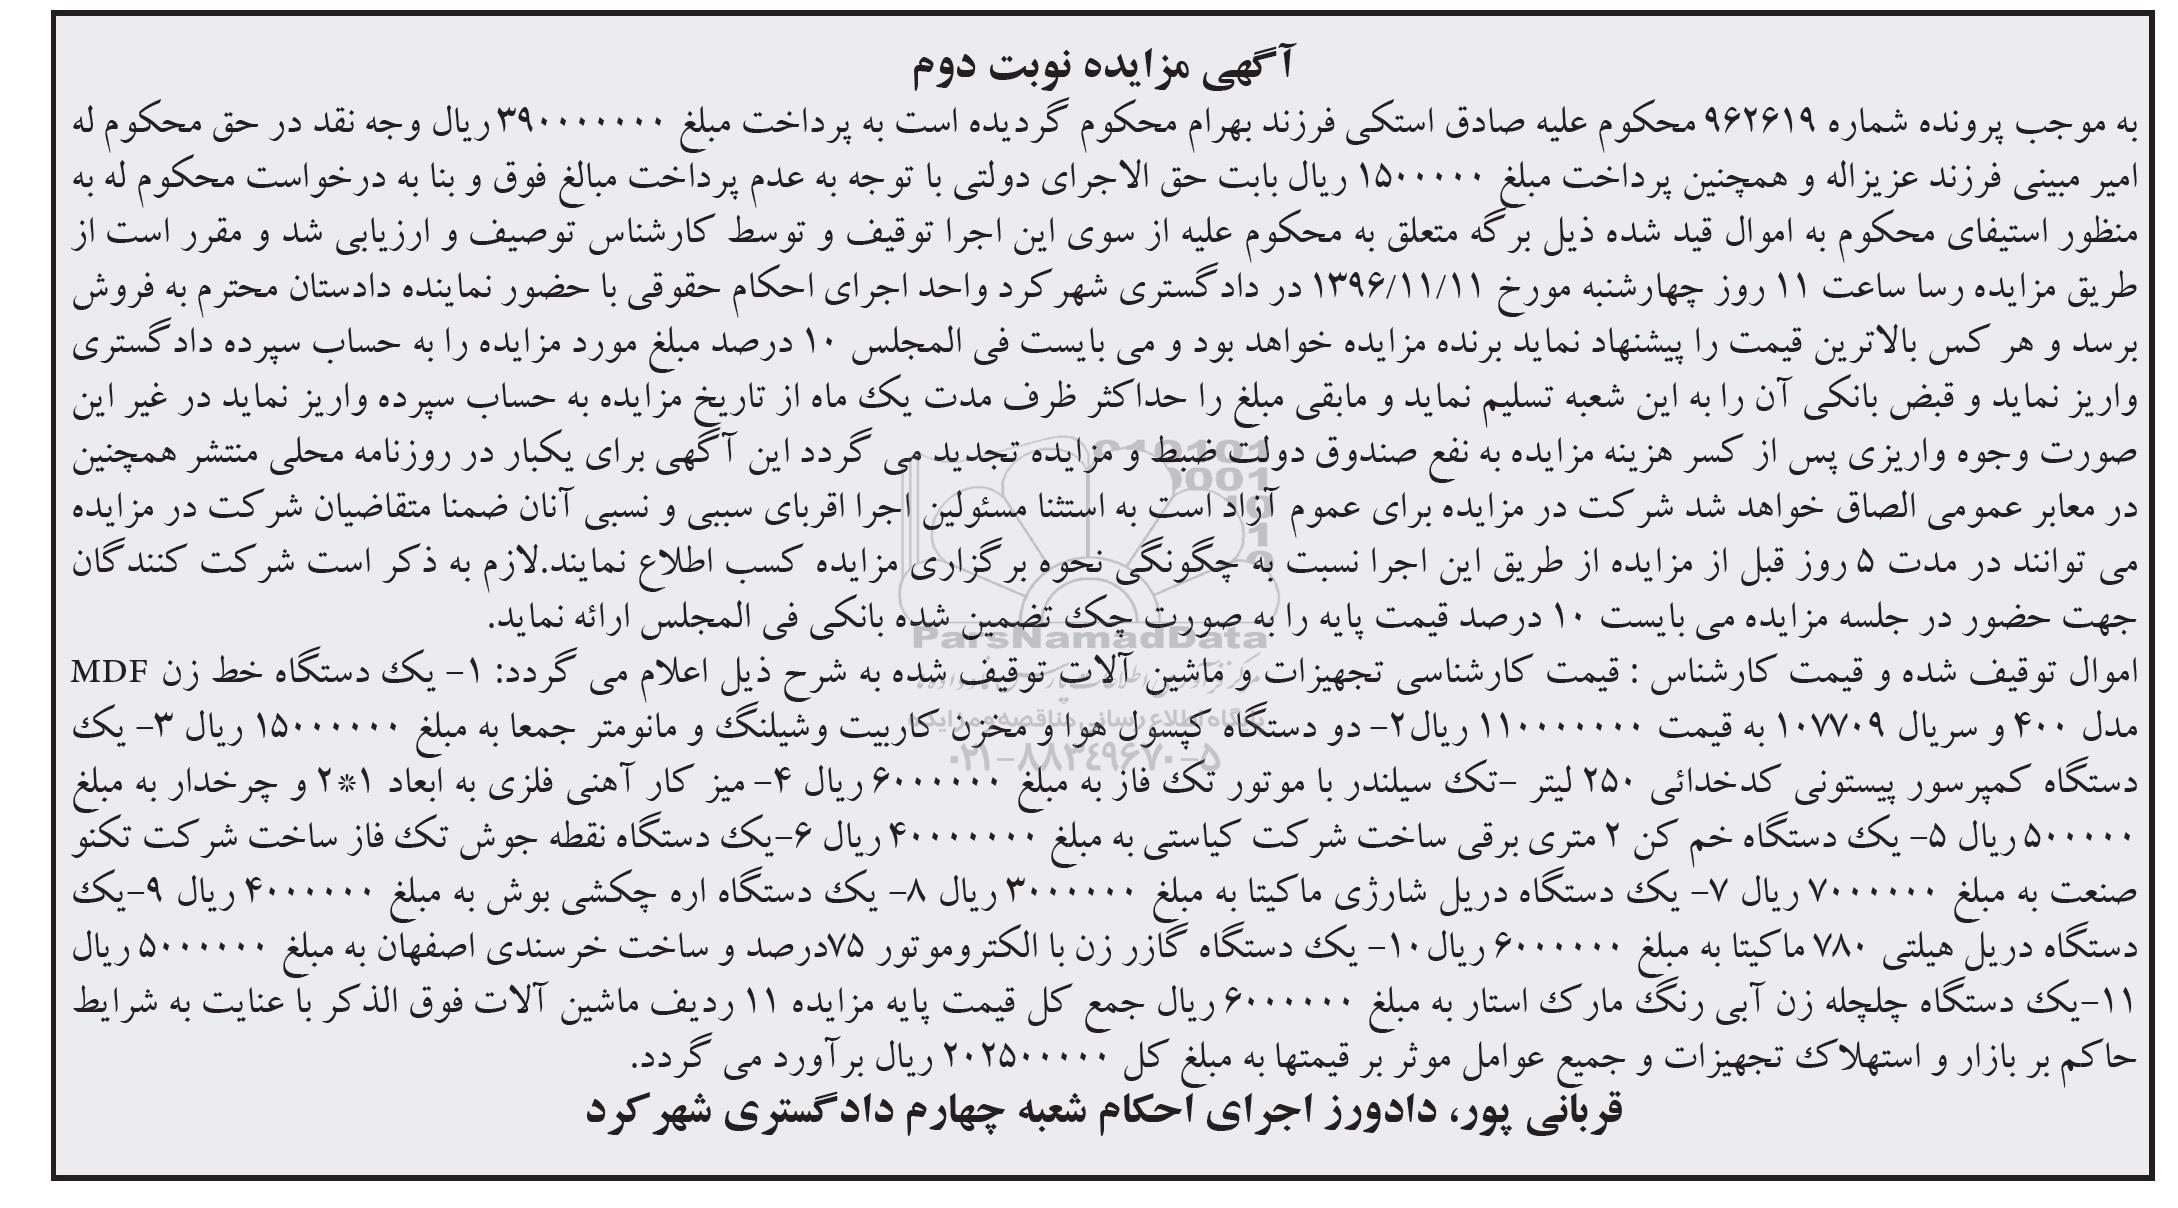 آگهی مزایده نوبت دوم
به موجب پرونده شماره ۹۶۲۶۱۹ محکوم علیه صادق استکی فرزند بهرام محکوم گردیده است به پرداخت مبلغ ۳۹۰۰۰۰۰۰۰ ریال وجه نقد در حق محکوم له
امیر مبینی فرزند عزیزاله و همچنین پرداخت مبلغ ۱۵۰۰۰۰۰ ریال بابت حق الاجرای دولتی با توجه به عدم پرداخت مبالغ فوق و بنا به درخواست محکوم له به
منظور استیفای محکوم به اموال قید شده ذیل برگه متعلق به محکوم علیه از سوی این اجرا توقیف و توسط کارشناس توصیف و ارزیابی شد و مقرر است از
طریق مزایده رسا ساعت ۱۱ روز چهارشنبه مورخ ۱۳۹۶/۱۱/۱۱ در دادگستری شهرکرد واحد اجرای احکام حقوقی با حضور نماینده دادستان محترم به فروش
برسد و هر کس بالاترین قیمت را پیشنهاد نماید برنده مزایده خواهد بود و می بایست فی المجلس ۱۰ درصد مبلغ مورد مزایده را به حساب سپرده دادگستری
واریز نماید و قبض بانکی آن را به این شعبه تسلیم نماید و مابقی مبلغ را حداکثر ظرف مدت یک ماه از تاریخ مزایده به حساب سپرده واریز نماید در غیر این
صورت وجوه واریزی پس از کسر هزینه مزایده به نفع صندوق دولت ضبط و مزایده تجدید می گردد این آگهی برای یکبار در روزنامه محلی منتشر همچنین
در معابر عمومی الصاق خواهد شد شرکت در مزایده برای عموم آزاد است به استثنا مسئولین اجرا اقربای سببی و نسبی آنان ضمنا متقاضیان شرکت در مزایده
می توانند در مدت ۵ روز قبل از مزایده از طریق این اجرا نسبت به چگونگی نحوه برگزاری مزایده کسب اطلاع نمایند.لازم به ذکر است شرکت کنندگان
جهت حضور در جلسه مزایده می بایست ۱۰ درصد قیمت پایه را به صورت چک تضمین شده بانکی فی المجلس ارائه نماید.
ParsNamadData
اموال توقیف شده و قیمت کارشناس : قیمت کارشناسی تجهیزات و ماشین آلات توقیف شده به شرح ذیل اعلام می گردد: ۱- یک دستگاه خط زن MDF
پایگاه اطلاع رسانی مناقصه و مزایده
مدل ۴۰۰ و سریال ۱۰۷۷۰۹ به قیمت ۱۱۰۰۰۰۰۰۰ ریال۲- دو دستگاه کپسول هوا و مخزن کاربیت وشیلنگ و مانومتر جمعا به مبلغ ۱۵۰۰۰۰۰۰ ریال ۳- یک
۰۲۱-۸۸۳۴۹۶۷۰-۵
دستگاه کمپرسور پیستونی کدخدائی ۲۵۰ لیتر -تک سیلندر با موتور تک فاز به مبلغ ۶۰۰۰۰۰۰ ریال ۴- میز کار آهنی فلزی به ابعاد ۱*۲ و چرخدار به مبلغ
۵۰۰۰۰۰ ریال ۵- یک دستگاه خم کن ۲ متری برقی ساخت شرکت کیاستی به مبلغ ۴۰۰۰۰۰۰۰ ریال ۶-یک دستگاه نقطه جوش تک فاز ساخت شرکت تکنو
صنعت به مبلغ ۷۰۰۰۰۰۰ ریال ۷- یک دستگاه دریل شارژی ماکیتا به مبلغ ۳۰۰۰۰۰۰ ریال ۸- یک دستگاه اره چکشی بوش به مبلغ ۴۰۰۰۰۰۰ ریال ۹-یک
دستگاه دریل هیلتی ۷۸۰ ماکیتا به مبلغ ۶۰۰۰۰۰۰ ریال۱۰- یک دستگاه گازر زن با الکتروموتور ۷۵درصد و ساخت خرسندی اصفهان به مبلغ ۵۰۰۰۰۰۰ ریال
۱۱-یک دستگاه چلچله زن آبی رنگ مارک استار به مبلغ ۶۰۰۰۰۰۰ ریال جمع کل قیمت پایه مزایده ۱۱ ردیف ماشین آلات فوق الذکر با عنایت به شرایط
حاکم بر بازار و استهلاک تجهیزات و جمیع عوامل موثر بر قیمتها به مبلغ کل ۲۰۲۵۰۰۰۰۰ ریال برآورد می گردد.
قربانی پور، دادورز اجرای احکام شعبه چهارم دادگستری شهرکرد